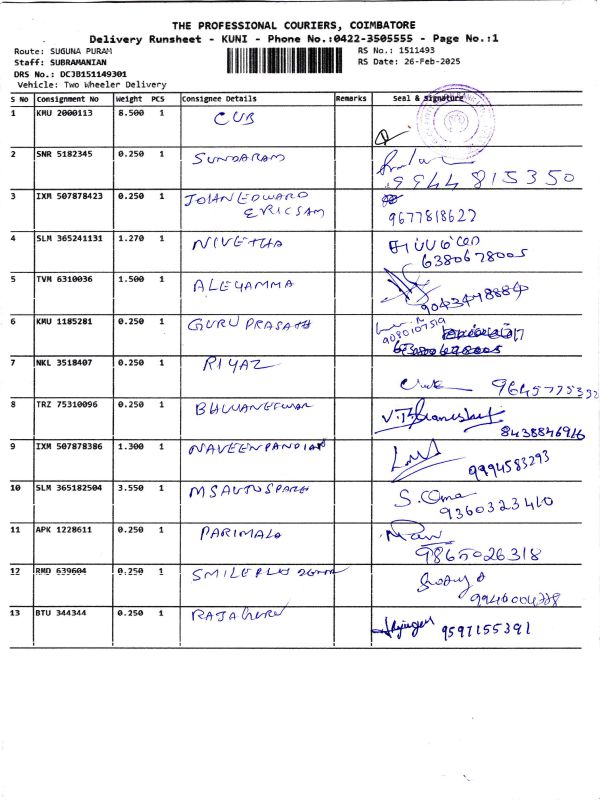 THE PROFESSIONAL COURIERS, COIMBATORE
Delivery Runsheet - KUNI - Phone No.:0422-3505555 - Page No.:1
Route: SUGUNA PURAM RS No.: 1511493
Staff: SUBRAMANIAN RS Date: 26-Feb-2025
DRS No.: DCJB151149301
Vehicle: Two Wheeler Delivery
S No Consignment No Weight PCS Consignee Details Remarks Seal & Signature
1 KMU 2000113 8.500 1 CUB
2 SNR 5182345 0.250 1 SUNDARAM
99448 15350
3 IXM 507878423 0.250 1 JOHN EDWARD
ERICSAM 9677818627
4 SLM 365241131 1.270 1 NIVETHA
6380678005
5 TVM 6310036 1.500 1 ALEYAMMA
6 KMU 1185281 0.250 1 GURU PRASATH
9080107519
7 NKL 3518407 0.250 1 RIYAZ
8 TRZ 75310096 0.250 1 BHUVANESWAR
8438846916
9 IXM 507878386 1.300 1 NAVEENPANDIAN
9994583293
10 SLM 365182504 3.550 1 MSAUTOSPARES
S. Oma
9360323410
11 APK 1228611 0.250 1 PARIMALA
9865026318
12 RMD 639604 0.250 1 SMILE PLUS
13 BTU 344344 0.250 1 RAJAGURU
9597155391